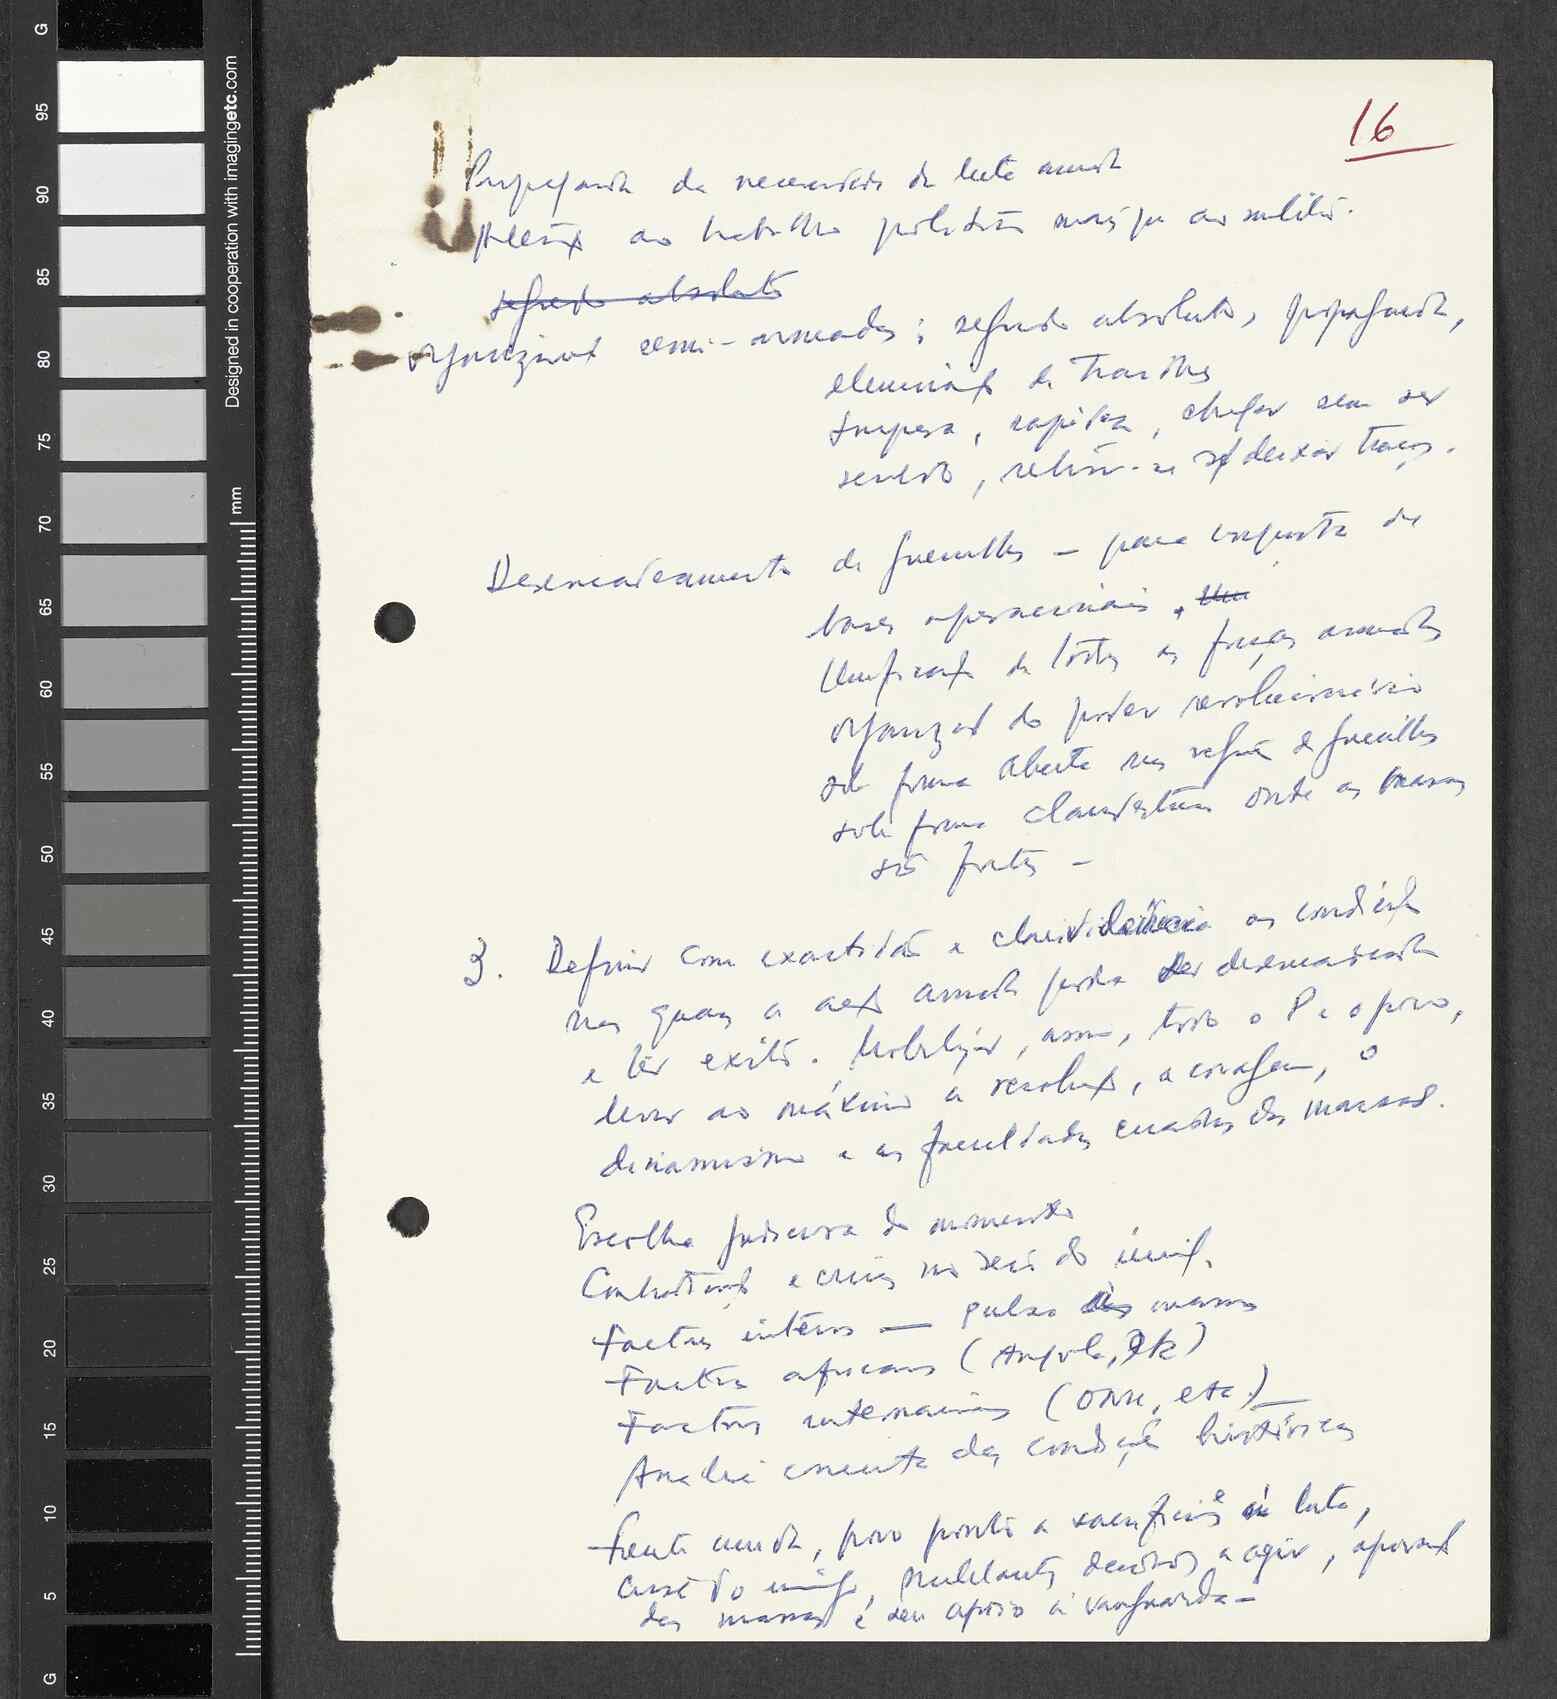 16
Propaganda da necessidade da luta armada
atenção ao trabalho político mais que ao militar.
segredo absoluto
organização semi-armadas; segredo absoluto, propaganda,
eliminação de traidores
surpresa, rapidez, chegar sem ser
sentido, retirar-se s/ deixar traços.
Desencadeamento de guerrilhas — para conquista de
bases operacionais,
Unificação de todas as forças armadas
organização do poder revolucionário
sob forma aberta nas regiões de guerrilhas
sob forma clandestina onde as massas
são fortes —
3. Definir com exactidão e clarividência as condições
nas quais a acção armada poderá ser desencadeada
e ter exito. Mobilizar, assim, todo o P e o povo,
levar ao máximo a resolução, a coragem, o
dinamismo e as faculdades criadoras das massas.
Escolha judiciosa do momento
Contradições e crises no seio do inimigo.
Factores internos — pulso das massas
Factores africanos (Angola, etc)
Factores internacionais (ONU, etc.) —
Analise concreta das condições históricas
Frente unida, povo pronto a sacrifícios e à luta,
crise do inimigo, militantes decididos a agir, aprovação
das massas e seu apoio à vanguarda —
Designed in cooperation with imagingetc.com
mm
G
95
90
85
80
75
70
65
60
55
50
45
40
35
30
25
20
15
10
5
G